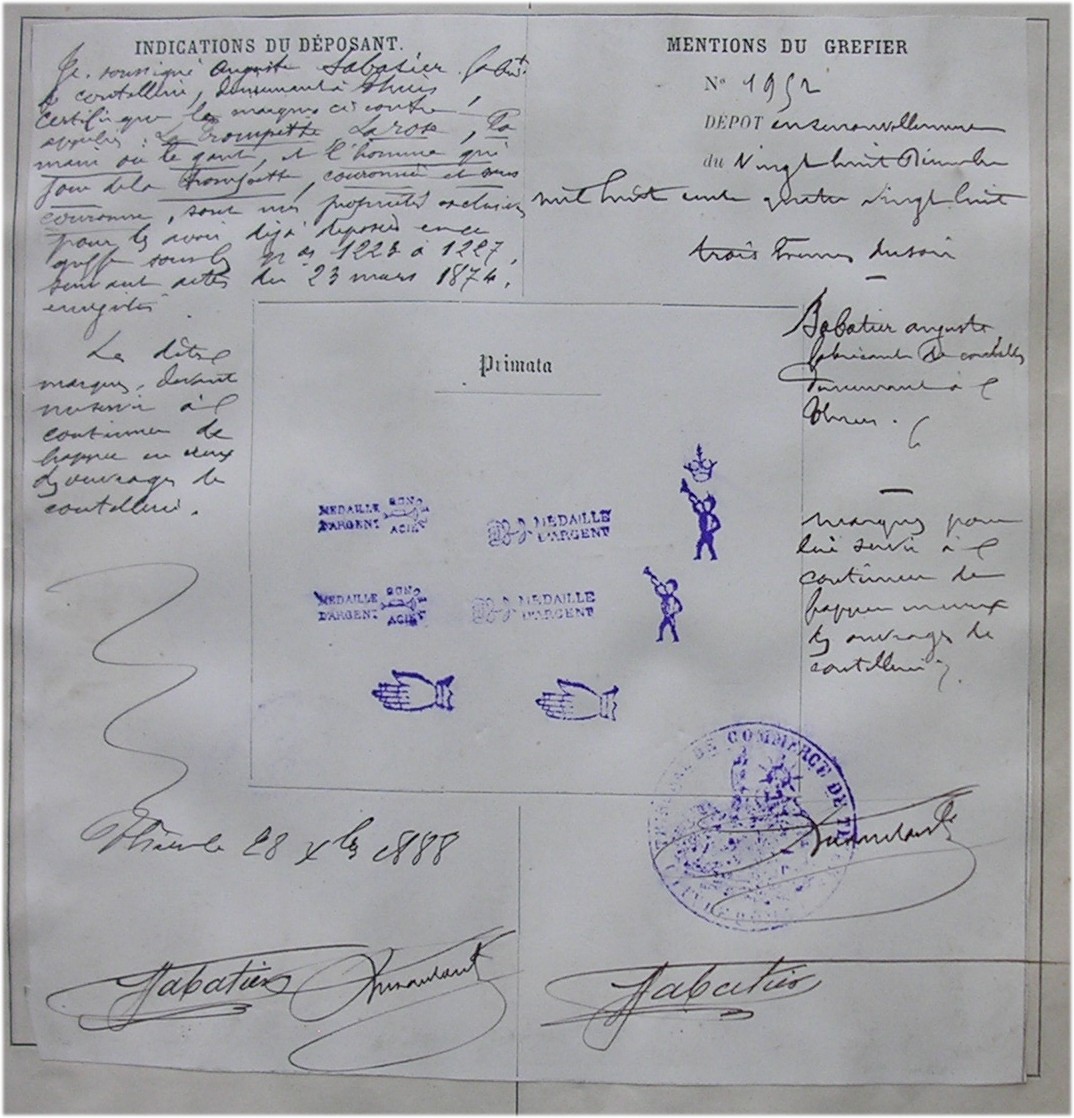 INDICATIONS DU DÉPOSANT.
Je soussigné Auguste Sabatier fabt
de coutellerie, demeurant à Thiers,
certifie que les marques ci contre
appelées : La Trompette La rose, La
main ou le gant, et l'homme qui
joue de la trompette, couronnée et sans
couronne, sont mes propriétés exclusives
pour les avoir déjà déposées en ce
greffe sous les nos 1223 à 1227,
suivant actes du 23 mars 1874,
enregistrés
Les dites
marques, devant
me servir à
continuer de
frapper en creux
des ouvrages de
coutellerie.
Thiers le 28 Xbre 1888
Sabatier
MENTIONS DU GREFIER
No 1952
DÉPOT en renouvellement
du Vingt huit Décembre
mil huit cent quatre vingt huit
trois heures du soir
Sabatier Auguste
fabricant de coutellerie
demeurant à
Thiers.
marques pour
lui servir à
continuer de
frapper en creux
des ouvrages de
coutellerie
Sabatier
Primata
MEDAILLE D'ARGENT BON ACIER
MEDAILLE D'ARGENT
MEDAILLE D'ARGENT BON ACIER
MEDAILLE D'ARGENT
DE COMMERCE DE